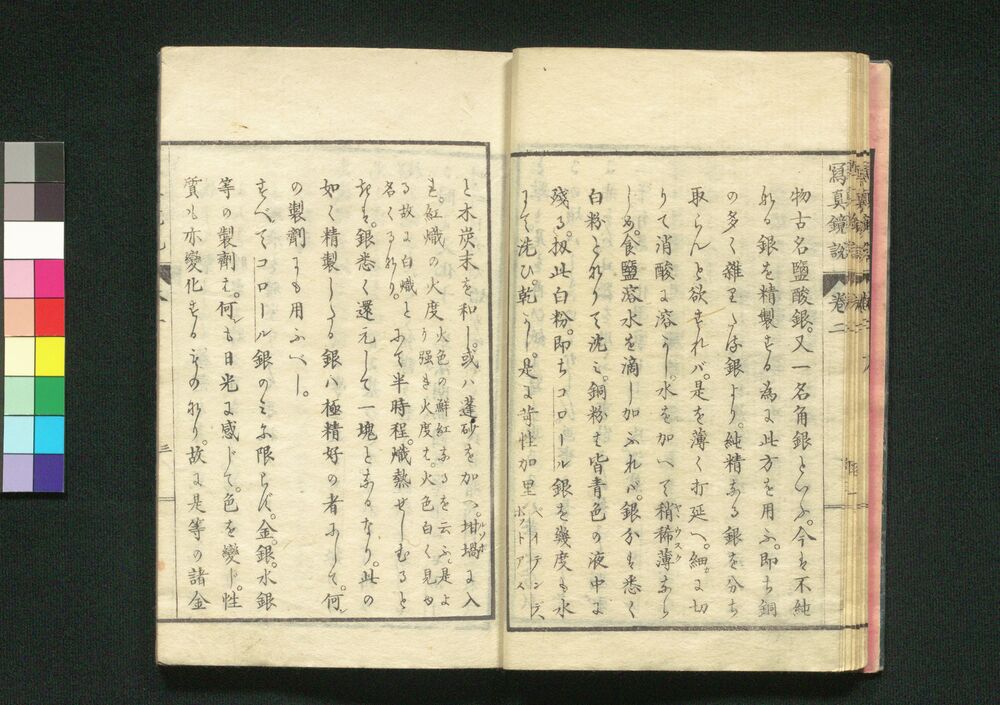 寫真鏡說 卷二
物古名鹽酸銀。又一名角銀といふ。今も不純
なる銀を精製する為に此方を用ふ。即ち銅
の多く雜りたる銀より。純精なる銀を分ち
取らんと欲すれバ。是を薄く打延へ。細に切
りて消酸に溶かし。水を加へて稍稀薄ならヤウスク
しめ。食鹽溶水を滴し加ふれバ。銀分も悉く
白粉となりて沈ミ。銅粉も皆青色の液中に
殘る。扨此白粉。即ちコロール銀を幾度も水
にて洗ひ乾かし。是に苛性加里ベイテンデポットアス
と木炭末を和し。或ハ蓬砂を加へ。坩堝ルツボに入
も。紅熾の火度火色の鮮紅なるを云ふ。是よ
り强き火度も。火色白く見ゆ
る故に白熾と
名くるなり。にて半時程。熾熱せしむると
きも。銀悉く還元して一塊となるなり。此の
如く精製したる銀ハ極精好の者にして。何
の製劑にも用ふべし。
すべてコロール銀のミに限らず。金。銀。水銀
等の製劑も。何も日光に感じて。色を變じ。性
質も亦變化するものなり。故に是等の諸金
三